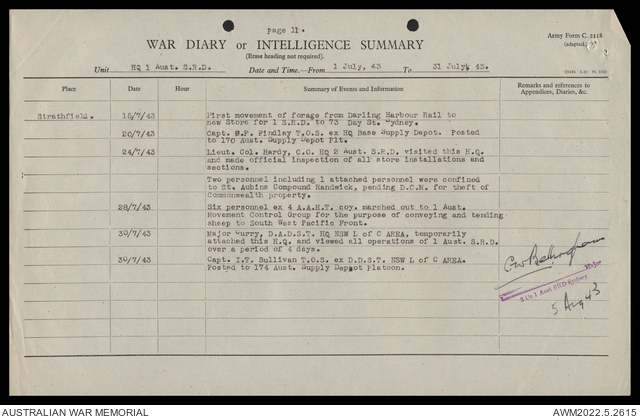 page 11.
Army Form C. 2118
WAR DIARY or INTELLIGENCE SUMMARY
(adapted)
(Erase heading not required).
Unit HQ 1 Aust. S.R.D. Date and Time.—From 1 July, 43 To 31 July, 43.
Place Date Hour Summary of Events and Information Remarks and references to Appendices, Diaries, &c.
Strathfield. 15/7/43 First movement of forage from Darling Harbour Rail to
new Store for 1 S.R.D. to 73 Day St. Sydney.
20/7/43 Capt. B.F. Findlay T.O.S. ex HQ Base Supply Depot. Posted
to 170 Aust. Supply Depot Plt.
24/7/43 Lieut. Col. Hardy, C.O. HQ 2 Aust. S.R.D. visited this H.Q.
and made official inspection of all store installations and
sections.
Two personnel including 1 attached personnel were confined
to St. Aubins Compound Randwick, pending D.C.M. for theft of
Commonwealth property.
28/7/43 Six personnel ex 4 A.A.H.T. coy. marched out to 1 Aust.
Movement Control Group for the purpose of conveying and tending
sheep to South West Pacific Front.
30/7/43 Major Curry, D.A.D.S.T. HQ NSW L of C AREA, temporarily
attached this H.Q. and viewed all operations of 1 Aust. S.R.D.
over a period of 4 days.
30/7/43 Capt. I.T. Sullivan T.O.S. ex D.D.S.T. NSW L of C AREA.
Posted to 174 Aust. Supply Deppt Platoon.
Major
1 Aust SRD Sydney
5 Aug 43
AUSTRALIAN WAR MEMORIAL
AWM2022.5.2615